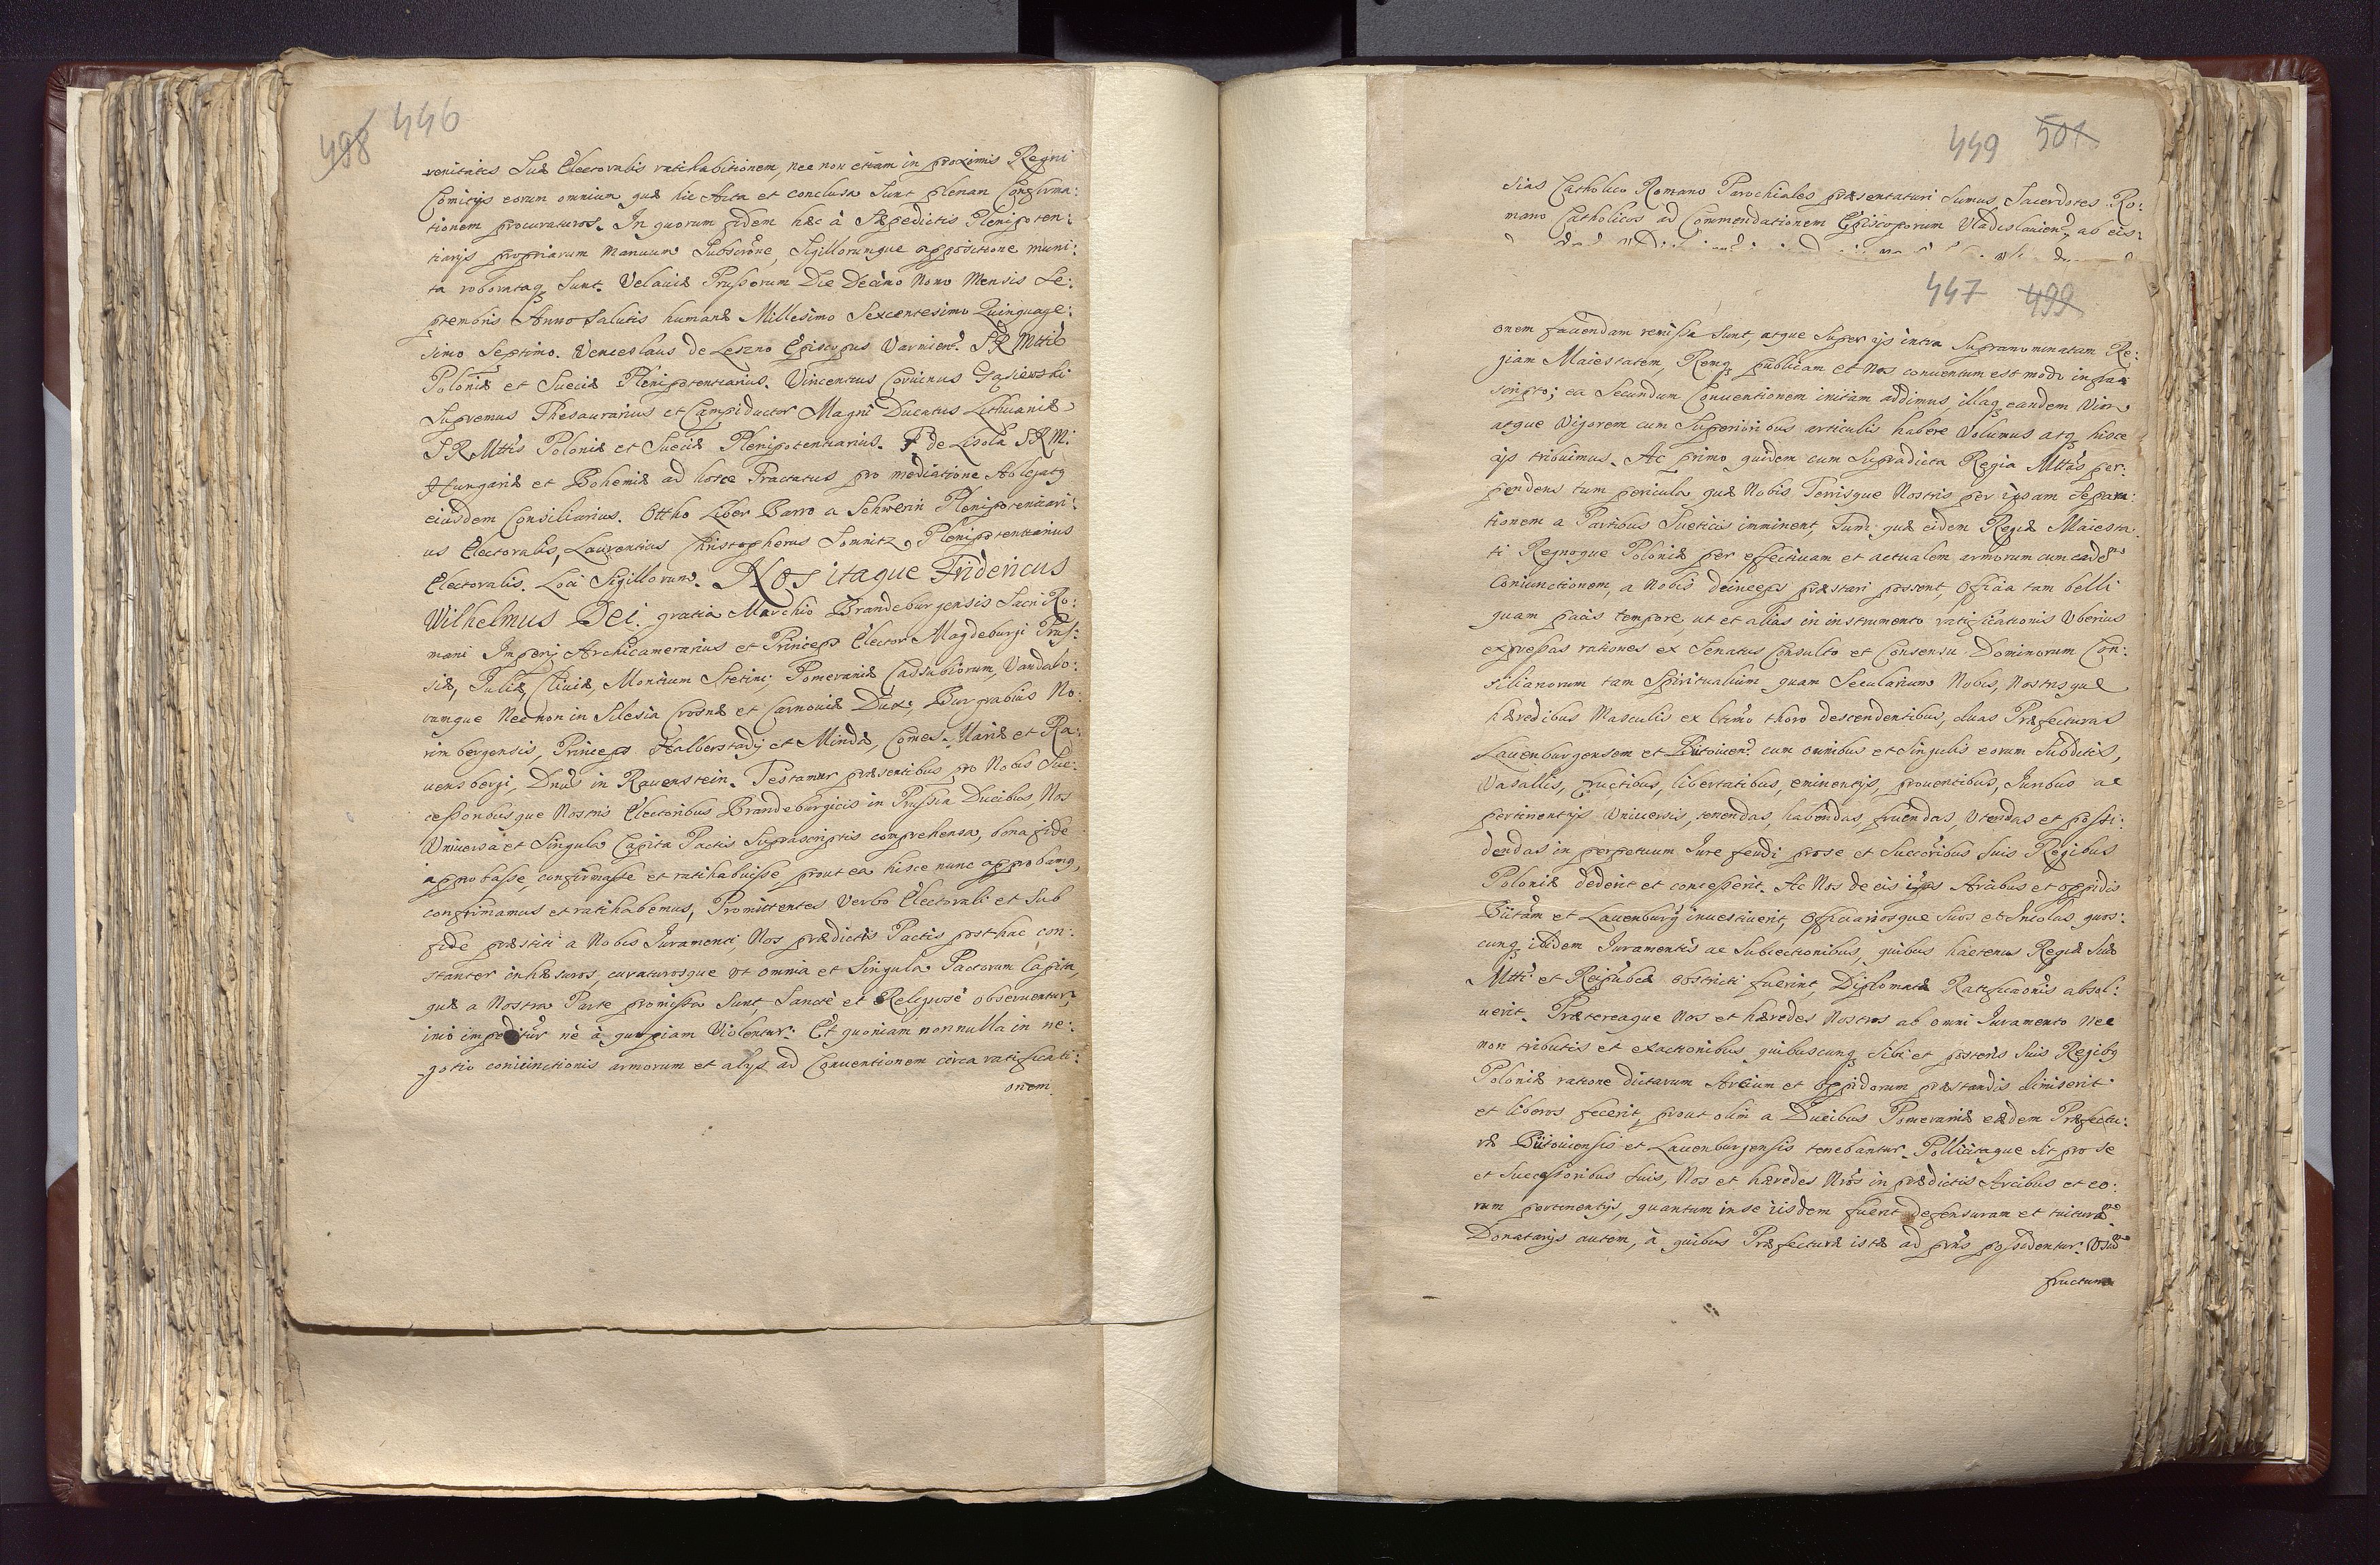 498 446
renitatis Suæ Electoralis ratihabitionem, nec non etiam in proximis Regni
Comitijs eorum omnium quæ hic Acta et conclusa Sunt plenam Confirma:
tionem procuraturos. In quorum fidem hæc à Sæpedictis Plenipoten:
tiarijs propriarum manuum Subscr̃one, Sigillorumque appositione muni:
ta roborataq₃ Sunt. Velaviæ Prussorum Die Decimo Nono Mensis Se:
ptembris Anno Salutis humanæ Millesimo Sexcentesimo Quinquage:
simo Septimo. Venceslaus de Leszno Episcopus Varmien̄. S R Mttis
Poloniæ et Sueciæ Plenipotentiarius. Vincentius Corvinus Gasiewski
Supremus Thesaurarius et Campiductor Magni Ducatus Lithuaniæ
S R Mttis Poloniæ et Sueciæ Plenipotentiarius. F. de Lisola S R M:
Hungariæ et Bohemiæ ad hosce Tractatus pro mediatione Ablegatq
eiusdem Consiliarius. Ottho Liber Barro a Schwerin Plenipotentiari:
us Electoralis, Laurentius Christopherus Somnitz, Plenipotentiarius
Electoralis. Loci Sigillorum. Nos itaque Fridericus
Wilhelmus Dei. gratia Marchio Brandeburgensis Sacri Ro:
mani Imperij Archicamerarius et Princeps Elector Magdeburgi Prus:
siæ, Juliæ, Cliviæ, Montium Stetini, Pomeraniæ Cassubiorum, Vandalo:
rumque Nec non in Silesia Crosnæ et Carnoviæ Dux, Burgrabius No:
rimbergensis, Princeps Halberstadij et Mindæ, Comes. Mariæ et Ra:
uensbergi, Dnus in Rauenstein. Testamur præsentibus pro Nobis Suc:
cessoribusque Nostris Electoribus Brandeburgicis in Prussia Ducibus, Nos
Universa et Singula Capita Pactis Suprascriptis comprehensa, bona fide
approbasse, confirmasse et ratihabuisse, prout ea hisce nunc approbamq,
confirmamus et ratihabemus, Promittentes Verbo Electorali et Sub
fide præstiti a Nobis Juramenti, Nos prædictis Pactis posthac con:
stanter inhæsuros, curaturosque ut omnia et Singula Pactorum Capita,
quæ a Nostra Parte promissa Sunt, Sancté et Religiosé observentur,
ne à quopiam Violentur. Et quoniam nonnulla in ne:
gotio coniunctionis armorum et alijs ad Conventionem circa ratificati:
onem
449 501
sias Catholico Romano Parochiales præsentaturi Sumus, Sacerdotes Ro:
mano Catholicos ad Commendationem Episcoporum Vladislavien̄, ab eis:
447 499
onem fauendam remissa Sunt, atque Super ijs intra Supranominatam Re:
giam Maiestatem, Remq₃ publicam et Nos conventum est modo infra
scripto; ea Secundum Conventionem initam addimus, illaq₃ eandem Vim
atque Vigorem cum Superioribus articulis habere Volumus atq₃ hisce
ijs tribuimus. Ac primo quidem cum Supradicta Regia Mttas per:
pendens tum pericula quæ Nobis Terrisque Nostris per ipsam Separa:
tionem a Partibus Sueticis imminent, Tum quæ eidem Regiæ Maiesta:
ti Regnoque Poloniæ per effectivam et actualem armorum cum eadem
Coniunctionem, a Nobis deinceps præstari possent, Officia tam belli
quam pacis tempore, ut et alias in instrumento ratificationis Uberius
expressas rationes ex Senatus Consulto et Consensu Dominorum Con:
siliariorum tam Spiritualium quam Secularium Nobis, Nostrisque
hæredibus Masculis ex ltimo thoro descendentibus, duas Præfecturas
Lauenburgensem et Bütovien̄. cum omnibus et Singulis eorum Subditis,
Vasallis, fructibus, libertatibus, eminentijs, proventibus, Juribus ac
pertinentijs Universis, tenendas, habendas, fruendas, Utendas et possi:
dendas in perpetuum Jure feudi pro se et Succoribus Suis Regibus
Poloniæ dederit et concesserit. Ac Nos de eis Arcibus et oppidis
Bütam et Lauenburg investiverit, Officiariosque Suos et Incolas, quos:
cunq₃ ibidem Juramentis ac Subiectionibus, quibus hactenus Regiæ Suæ
Mtti et Reipubcæ obstricti fuerint, Diplomate Ratificaõnis absol:
verit. Prætereaque Nos et hæredes Nostros ab omni Juramento Nec
non tributis et exactionibus quibuscunq₃ Sibi et posteris Suis Regibq
Poloniæ ratione dictarum Arcium et Oppidorum præstandis dimiserit
et liberos fecerit, prout olim a Ducibus Pomeraniæ eædem Præfectu:
ræ Bütoviensis et Lauenburgensis tenebantur. Pollicitaque Sit pro Se
et Successoribus Suis, Nos et hæredes Nros in prædictis Arcibus et eo:
rum pertinentijs, quantum in se iisdem fuerit defensuram et tuituram
Donatarijs autem, à quibus Præfecturæ istæ ad præs possidentur. Usum
fructum